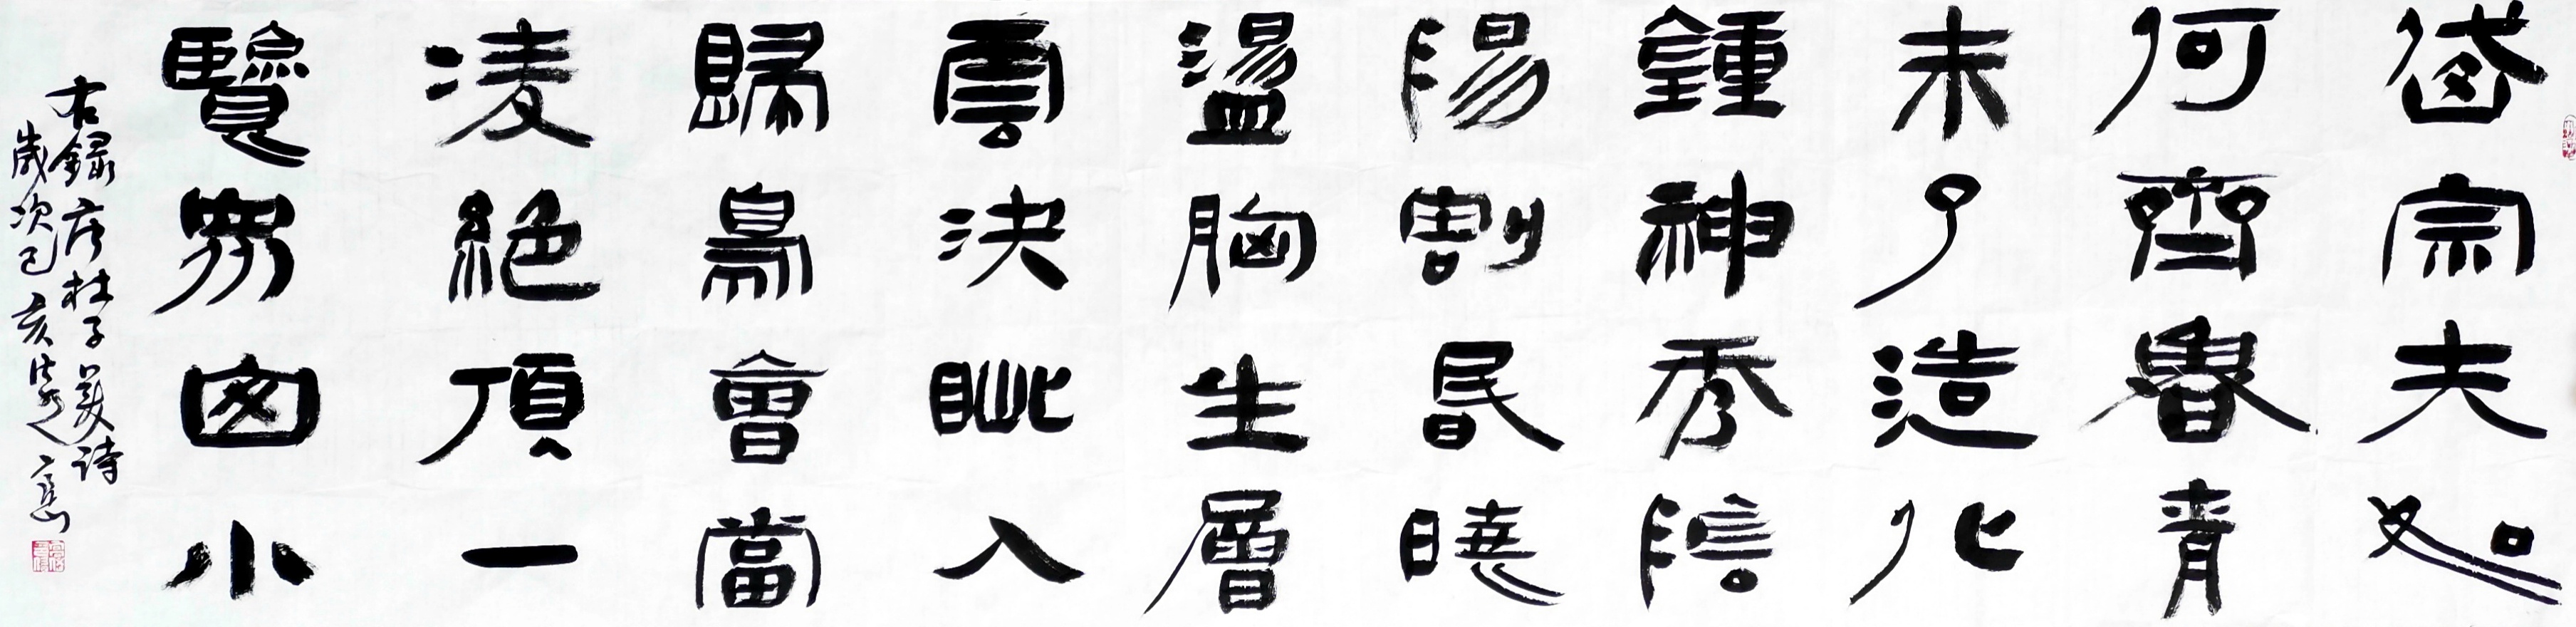 岱宗夫如
何齊魯青
未了造化
鍾神秀陰
陽割昬曉
盪胸生層
雲決眦入
歸鳥會當
凌絕頂一
覽眾山小
右錄唐杜子美詩
歲次己亥